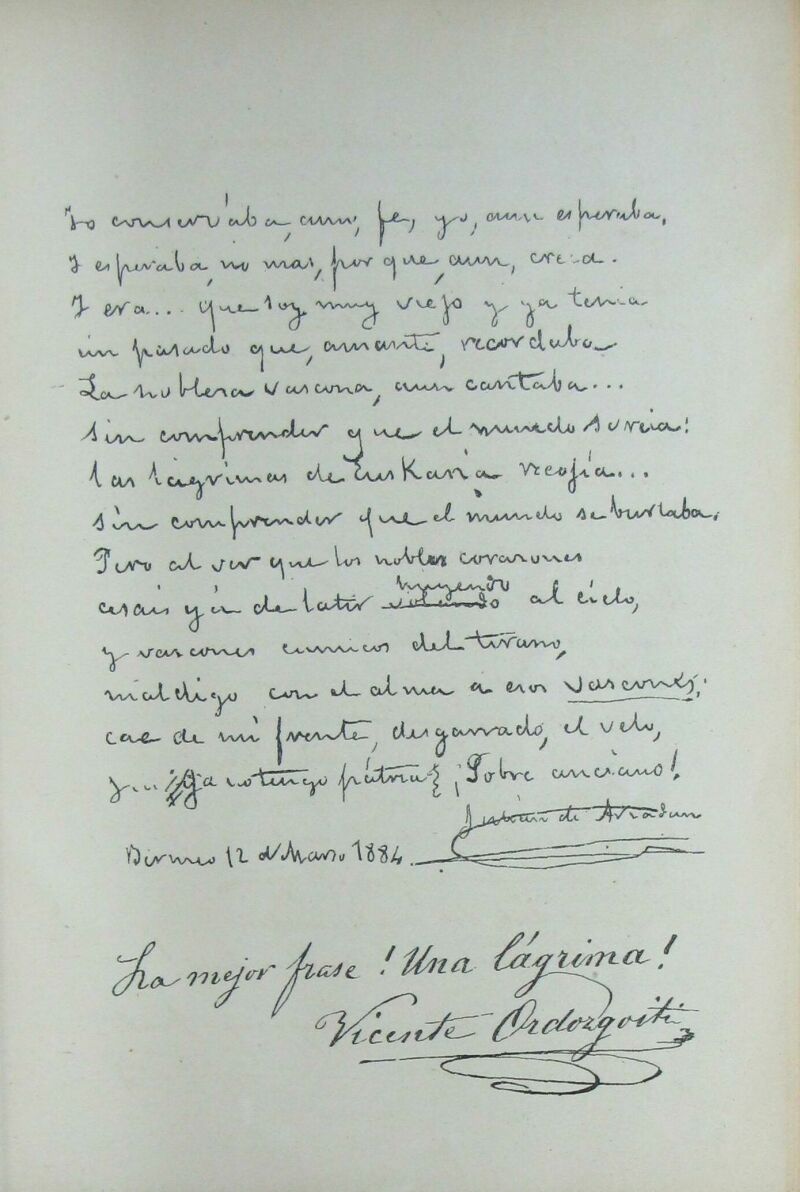 Yo conservaba, aun, fe, yo, aun esperaba,
Y esperaba, no mas, por que, aun, creia.
Y era... que soy muy viejo y ya tenia
un pasado que, amante, recordaba
La nobleza vascona, aun cantaba...
sin comprender que el mundo sorreia!
las lágrimas de Euskaria recojía...
sin comprender que el mundo se burlaba.
Pero al ver que los nobles corazones
cesais ya de latir volando huyendo al cielo,
y vascones eunucos del tirano,
maldigo con el alma a esos vascones;
cae de mi frente, desgarrado, el velo,
y... ¡Ya no tengo pátria! ¡Pobre anciano!
de
Bermeo 12 d Marzo 1884.
La mejor frase! Una lágrima!
Vicente Ordozgoiti